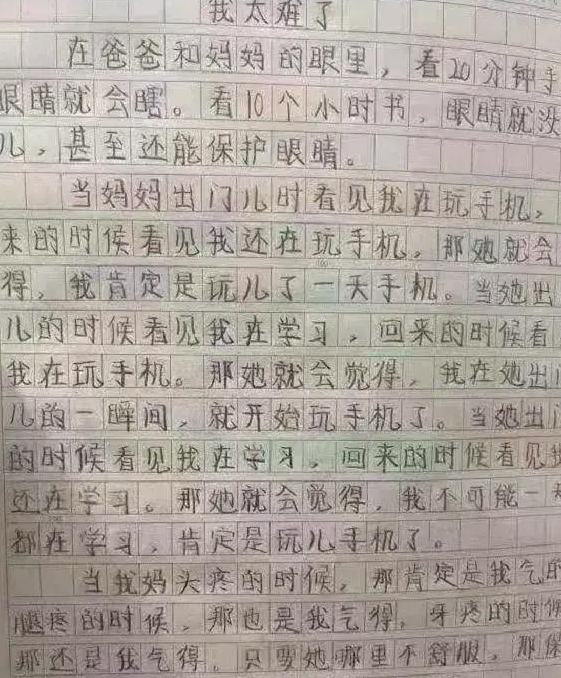 我太难了
在爸爸和妈妈的眼里，看20分钟手
眼睛就会瞎。看10个小时书，眼睛就没
儿，甚至还能保护眼睛。
当妈妈出门儿时看见我在玩手机，
来的时候看见我还在玩手机。那她就会
得，我肯定是玩儿了一天手机。当她出
儿的时候看见我在学习，回来的时候看
我在玩手机。那她就会觉得，我在她出门
儿的一瞬间，就开始玩手机了。当她出门
的时候看见我在学习，回来的时候看见我
还在学习。那她就会觉得，我不可能一天
都在学习，肯定是玩儿手机了。
当我妈头疼的时候，那肯定是我气的
腿疼的时候，那也是我气得，牙疼的时候
那还是我气得。只要她哪里不舒服，那保